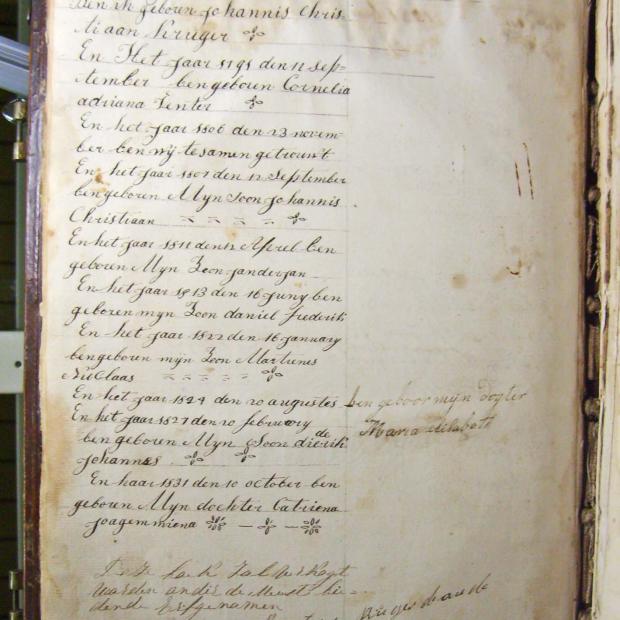 den ik geboren Johannis Chris-
tiaan Kruger
En Het Jaar 1791 den 12 Sep-
tember ben geboren Cornelia
adriana Venter
En het Jaar 1806 den 23 novem-
ber ben wij te samen getrouwt
En het Jaar 1807 den 12 September
ben geboren Mijn Soon Johannis
Christiaan
En het Jaar 1811 den 12 April ben
geboren Mijn Zoon Janderjan
En het Jaar 1813 den 16 Juny ben
geboren mijn Zoon daniel frederik
En het Jaar 1822 den 16 January
ben geboren mijn Zoon Martinus
Nicklaas
En het Jaar 1824 den 20 augustes ben geboor mijn dogter
Maria elisabeth
En het Jaar 1827 den 20 february
ben geboren Mijn Soon diederik
Johannes
En haar 1831 den 10 october ben
geboren Mijn dochter Catriena
Joagemmiena
worden onder de Meest bie-
dende Erfgenamen